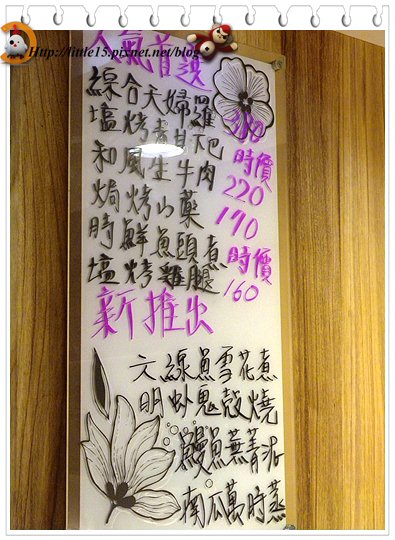 Http://little15.pixnet.net/blog
人氣首選
綜合天婦羅 280
塩烤青甘下巴 時價
和風生牛肉 220
焗烤山藥 190
時鮮魚頭煮 時價
塩烤雞腿 160
新推出
六線魚雪花煮
明虾鬼殼燒
鰻魚蕪菁泥
南瓜萬時蒸